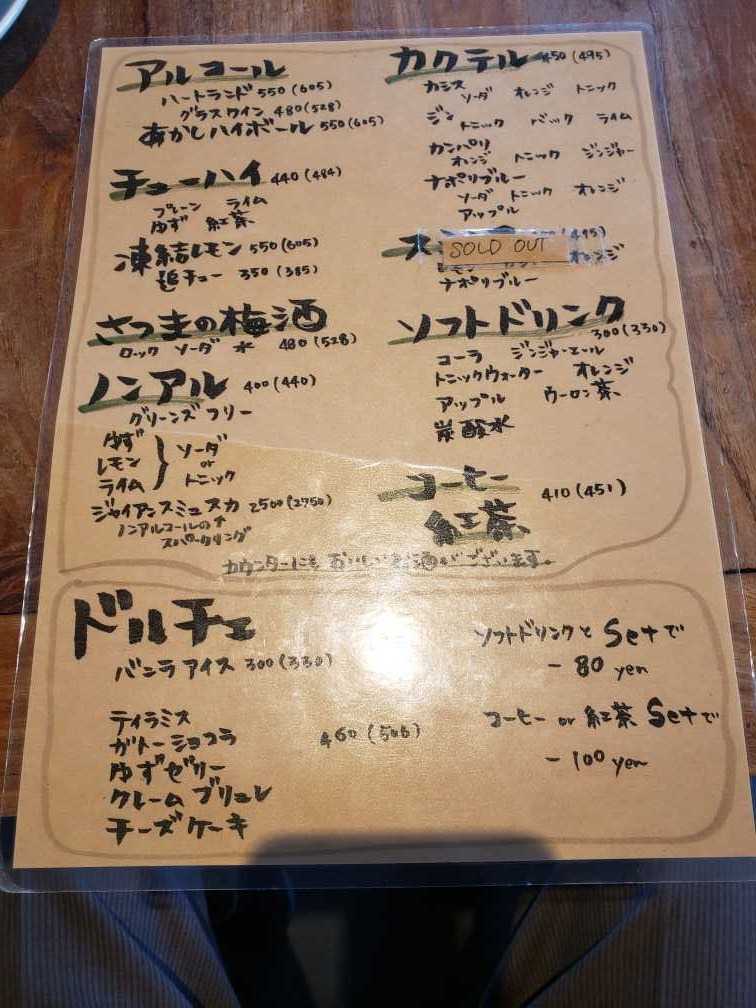 アルコール
ハートランド 550 (605)
グラスワイン 480 (528)
あかしハイボール 550 (605)
チューハイ 440 (484)
プレーン ライム
ゆず 紅茶
凍結レモン 550 (605)
追チュー 350 (385)
さつまの梅酒
ロック ソーダ 水 480 (528)
ノンアル 400 (440)
グリーンズフリー
ゆず
レモン
ライム
ソーダ
or
トニック
ジャイアンスミュスカ 2500 (2750)
ノンアルコールの↑
スパークリング
カクテル 450 (495)
カシス
ソーダ オレンジ トニック
ジン
トニック バック ライム
カンパリ
オレンジ トニック ジンジャー
ナポリブルー
ソーダ トニック オレンジ
アップル
SOLD OUT
オレンジ
ナポリブルー
ソフトドリンク
300 (330)
コーラ ジンジャーエール
トニックウォーター オレンジ
アップル ウーロン茶
炭酸水
コーヒー
紅茶
410 (451)
カウンターにも おいしいお酒がございます。
ドルチェ
バニラアイス 300 (330)
ティラミス
ガトーショコラ
ゆずゼリー
クレームブリュレ
チーズケーキ
460 (506)
ソフトドリンクと Setで
- 80 yen
コーヒー or 紅茶 Setで
- 100 yen